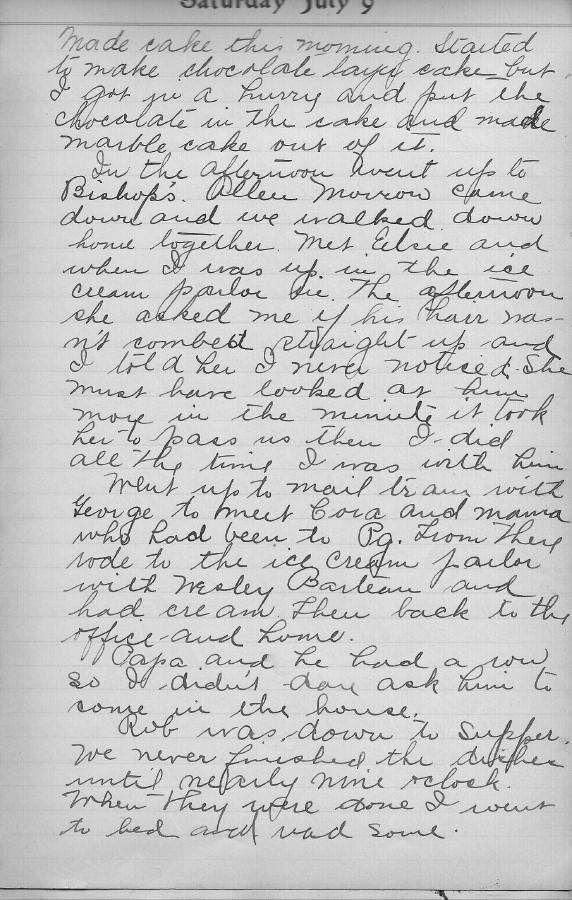 Saturday July 9
Made cake this morning. Started
to make chocolate layer cake but
I got in a hurry and put the
chocolate in the cake and made
marble cake out of it.
In the afternoon went up to
Bishop's. Allen Morrow came
down and we walked down
home together. Met Elsie and
when I was up in the ice
cream parlor in the afternoon
she asked me if his hair was-
n't combed straight up and
I told her I never noticed. She
must have looked at him
more in the minute it took
her to pass us then I did
all the time I was with him
Went up to mail train with
George to meet Cora and mama
who had been to Pg. From there
rode to the ice cream parlor
with Wesley Barteau and
had cream. Then back to the
office and home.
Papa and he had a row
so I didn't dare ask him to
come in the house.
Rob was down to supper.
We never finished the dishes
until nearly nine oclock.
When they were done I went
to bed and read some.